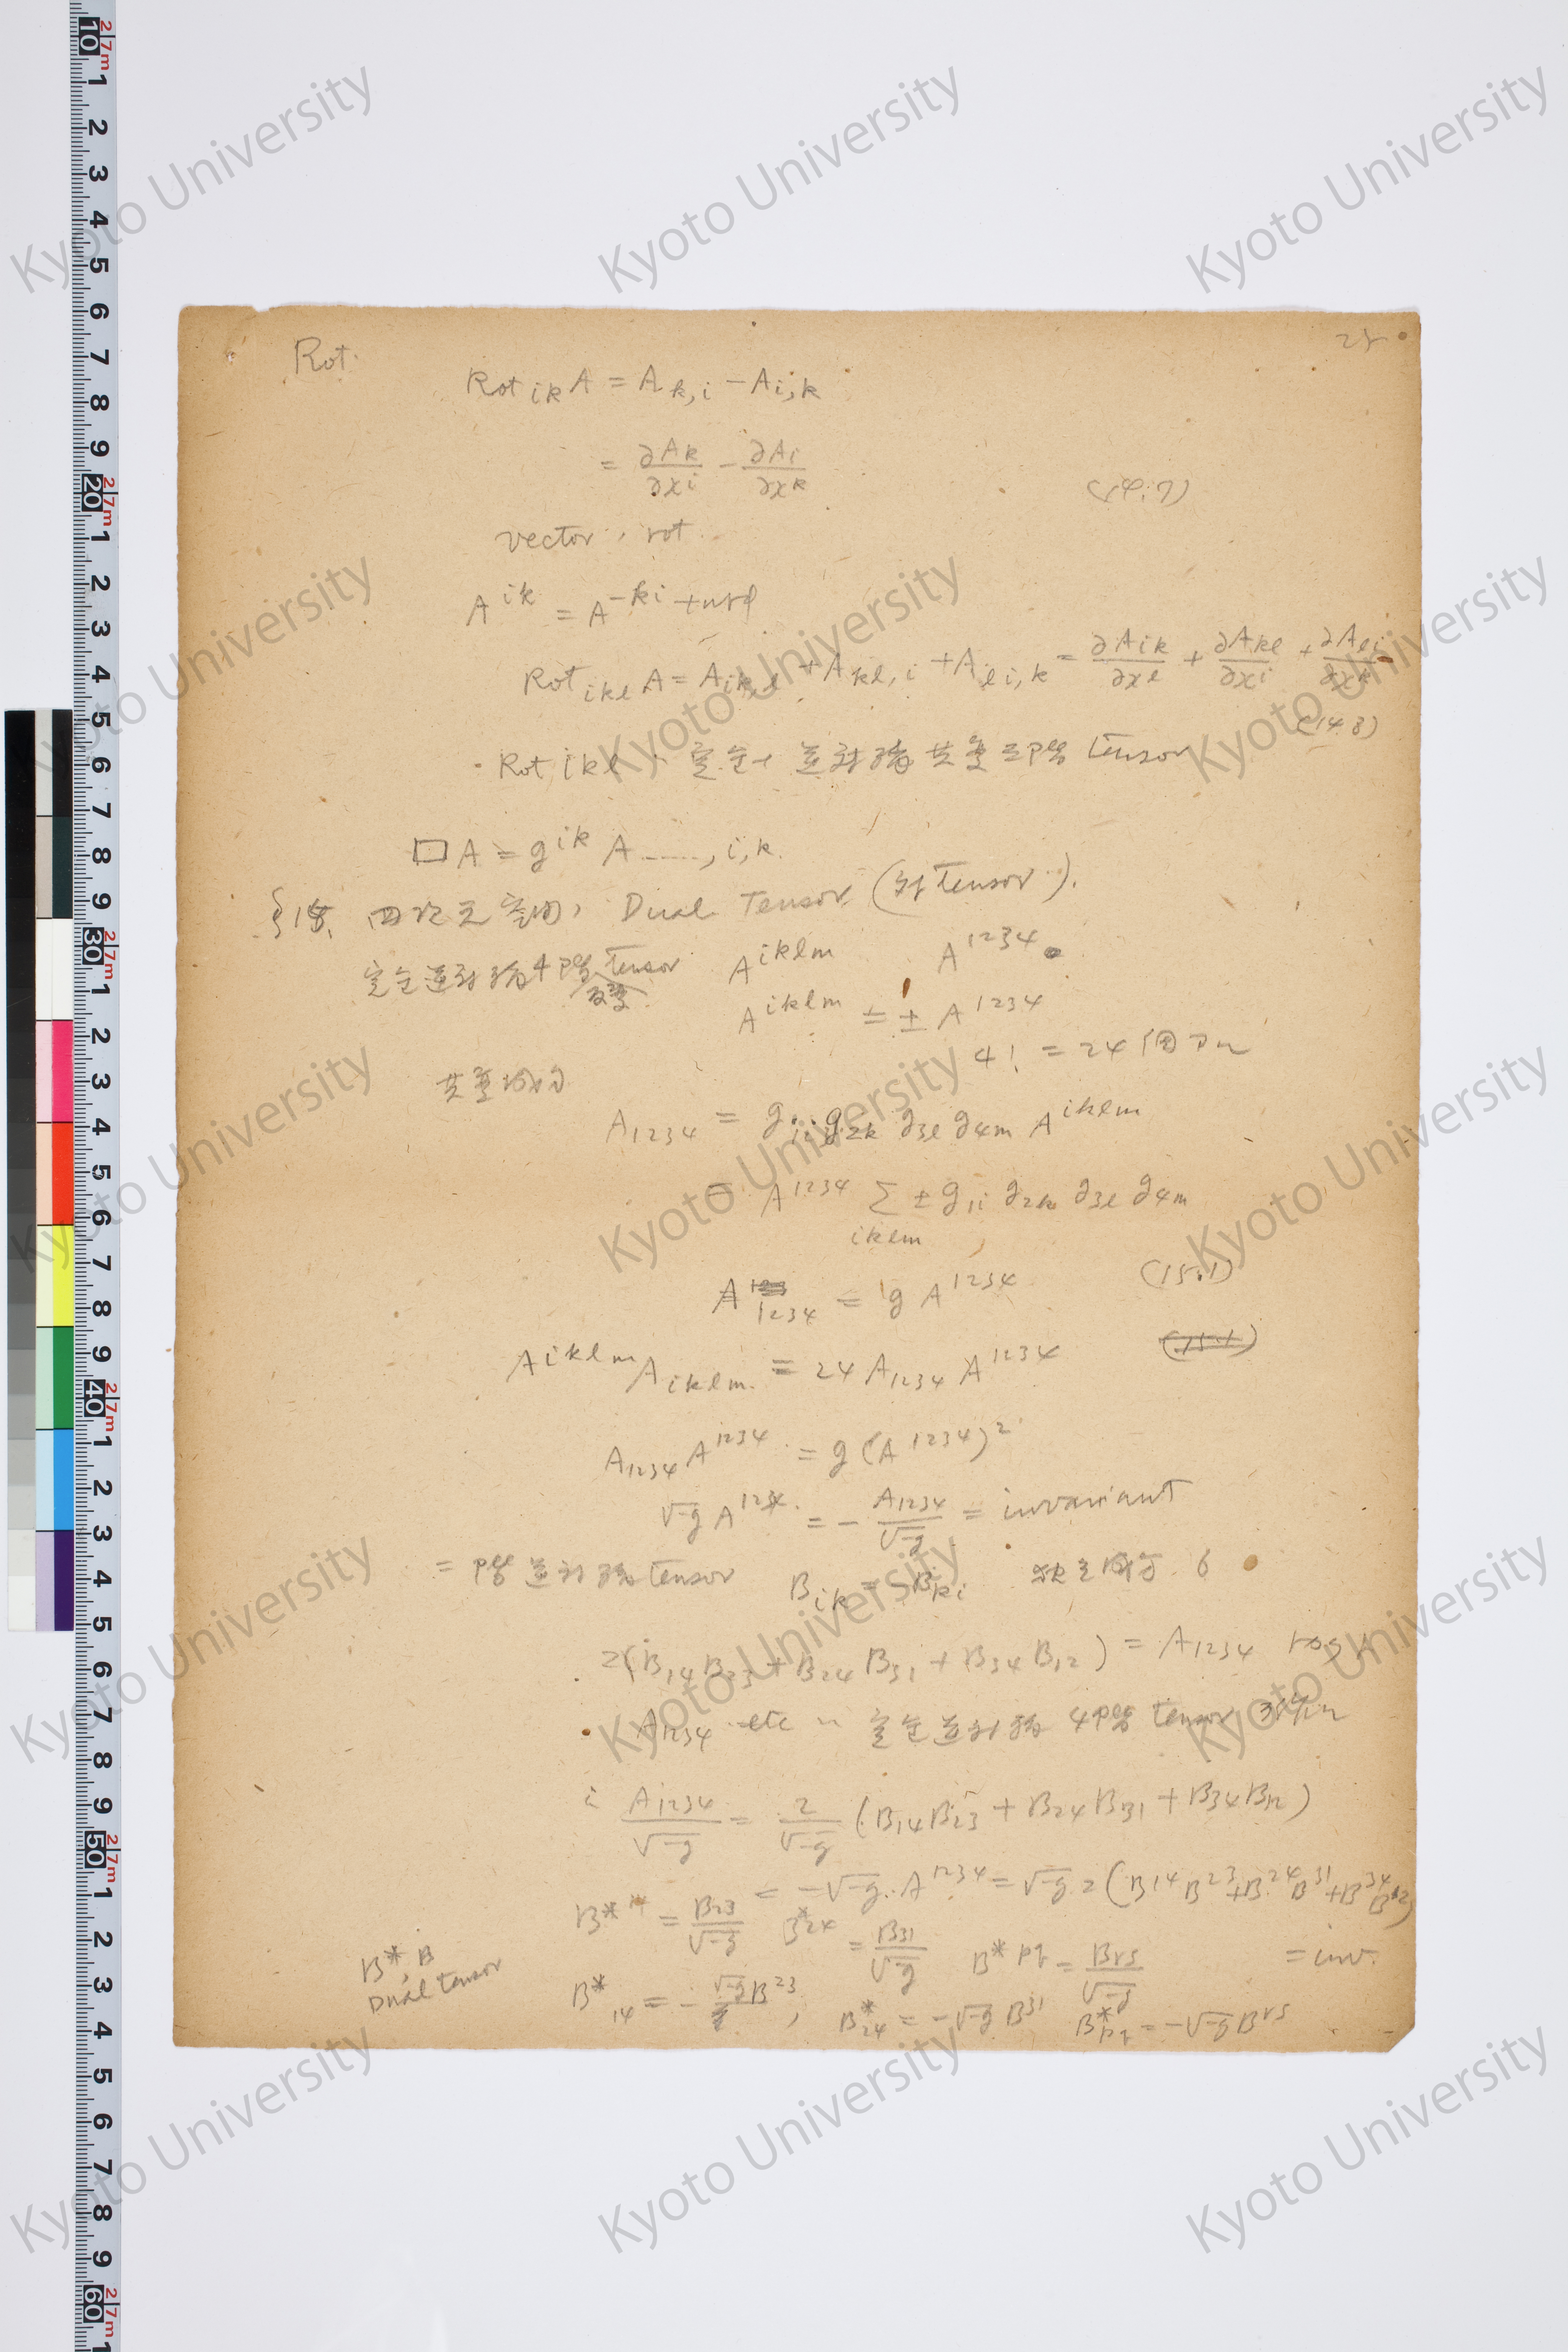 Rot.
Rot ik A = A k,i − A i,k
= ∂Ak/∂xi − ∂Ai/∂xk
vector, rot.
A^ik = A^−ki
Rot ikl A = A ik,l + A kl,i + A li,k = ∂Aik/∂xl + ∂Akl/∂xi + ∂Ali/∂xk
(14.8)
Rot ikl 完全 逆対称 共変 三階 tensor
□A = g^ik A ......, i, k.
§15. 四次元空間, Dual Tensor (対 tensor).
完全逆対称 4階 tensor A^iklm A^1234
反変
A^iklm = ± A^1234
4! = 24個
共変成分
A_1234 = g_1i g_2k g_3l g_4m A^iklm
= A^1234 Σ ± g_1i g_2k g_3l g_4m
iklm
A_1234 = g A^1234 (15.1)
A^iklm A_iklm = 24 A_1234 A^1234 (15.1)
A_1234 A^1234 = g (A^1234)^2
√-g A^1234 = − A_1234/√-g = invariant
= 階 逆対称 tensor B_ik = −B_ki 独立成分 6
2(B_14 B_23 + B_24 B_31 + B_34 B_12) = A_1234
A_1234 etc 完全逆対称 4階 tensor
A_1234/√-g = 2/√-g (B_14 B_23 + B_24 B_31 + B_34 B_12)
= −√-g. A^1234 = √-g 2 (B^14 B^23 + B^24 B^31 + B^34 B^12)
= inv.
B*^14 = B_23/√-g B*^24 = B_31/√-g B*^pq = B_rs/√-g
B*, B
Dual tensor
B*_14 = − √-g B^23, B*_24 = −√-g B^31 B*_pq = −√-g B^rs
Kyoto University